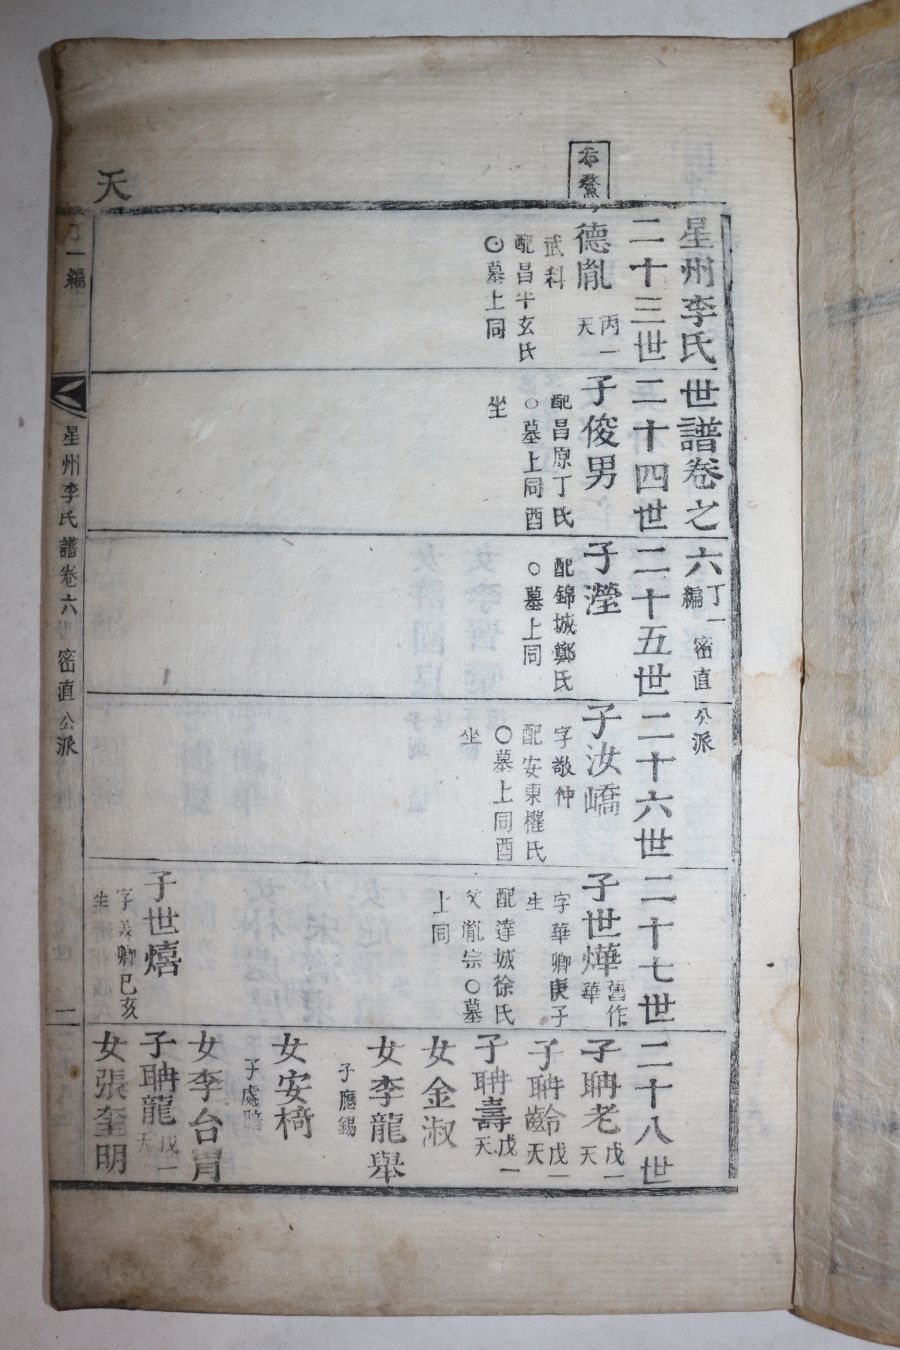 天
本鰲
星州李氏世譜卷之六 丁一編 密直公派
二十三世
德胤 丙一天
武科
配昌平玄氏
⊙墓上同
二十四世
子俊男
配昌原丁氏
○墓上同酉
坐
二十五世
子瀅
配錦城鄭氏
○墓上同
二十六世
子汝嶠
字敬仲
配安東權氏
○墓上同酉
坐
二十七世
子世燁 舊作華
字華卿庚子
生
配達城徐氏
父胤宗○墓
上同
子世熺
字義卿己亥
生
二十八世
子聃老 戊一天
子聃齡 戊一天
子聃壽 戊一天
女金淑
女李龍舉
子應錫
女安檹
子處
女李台胃
子聃龍 戊一天
女張奎明
丁一編
星州李氏譜卷六 密直公派
一